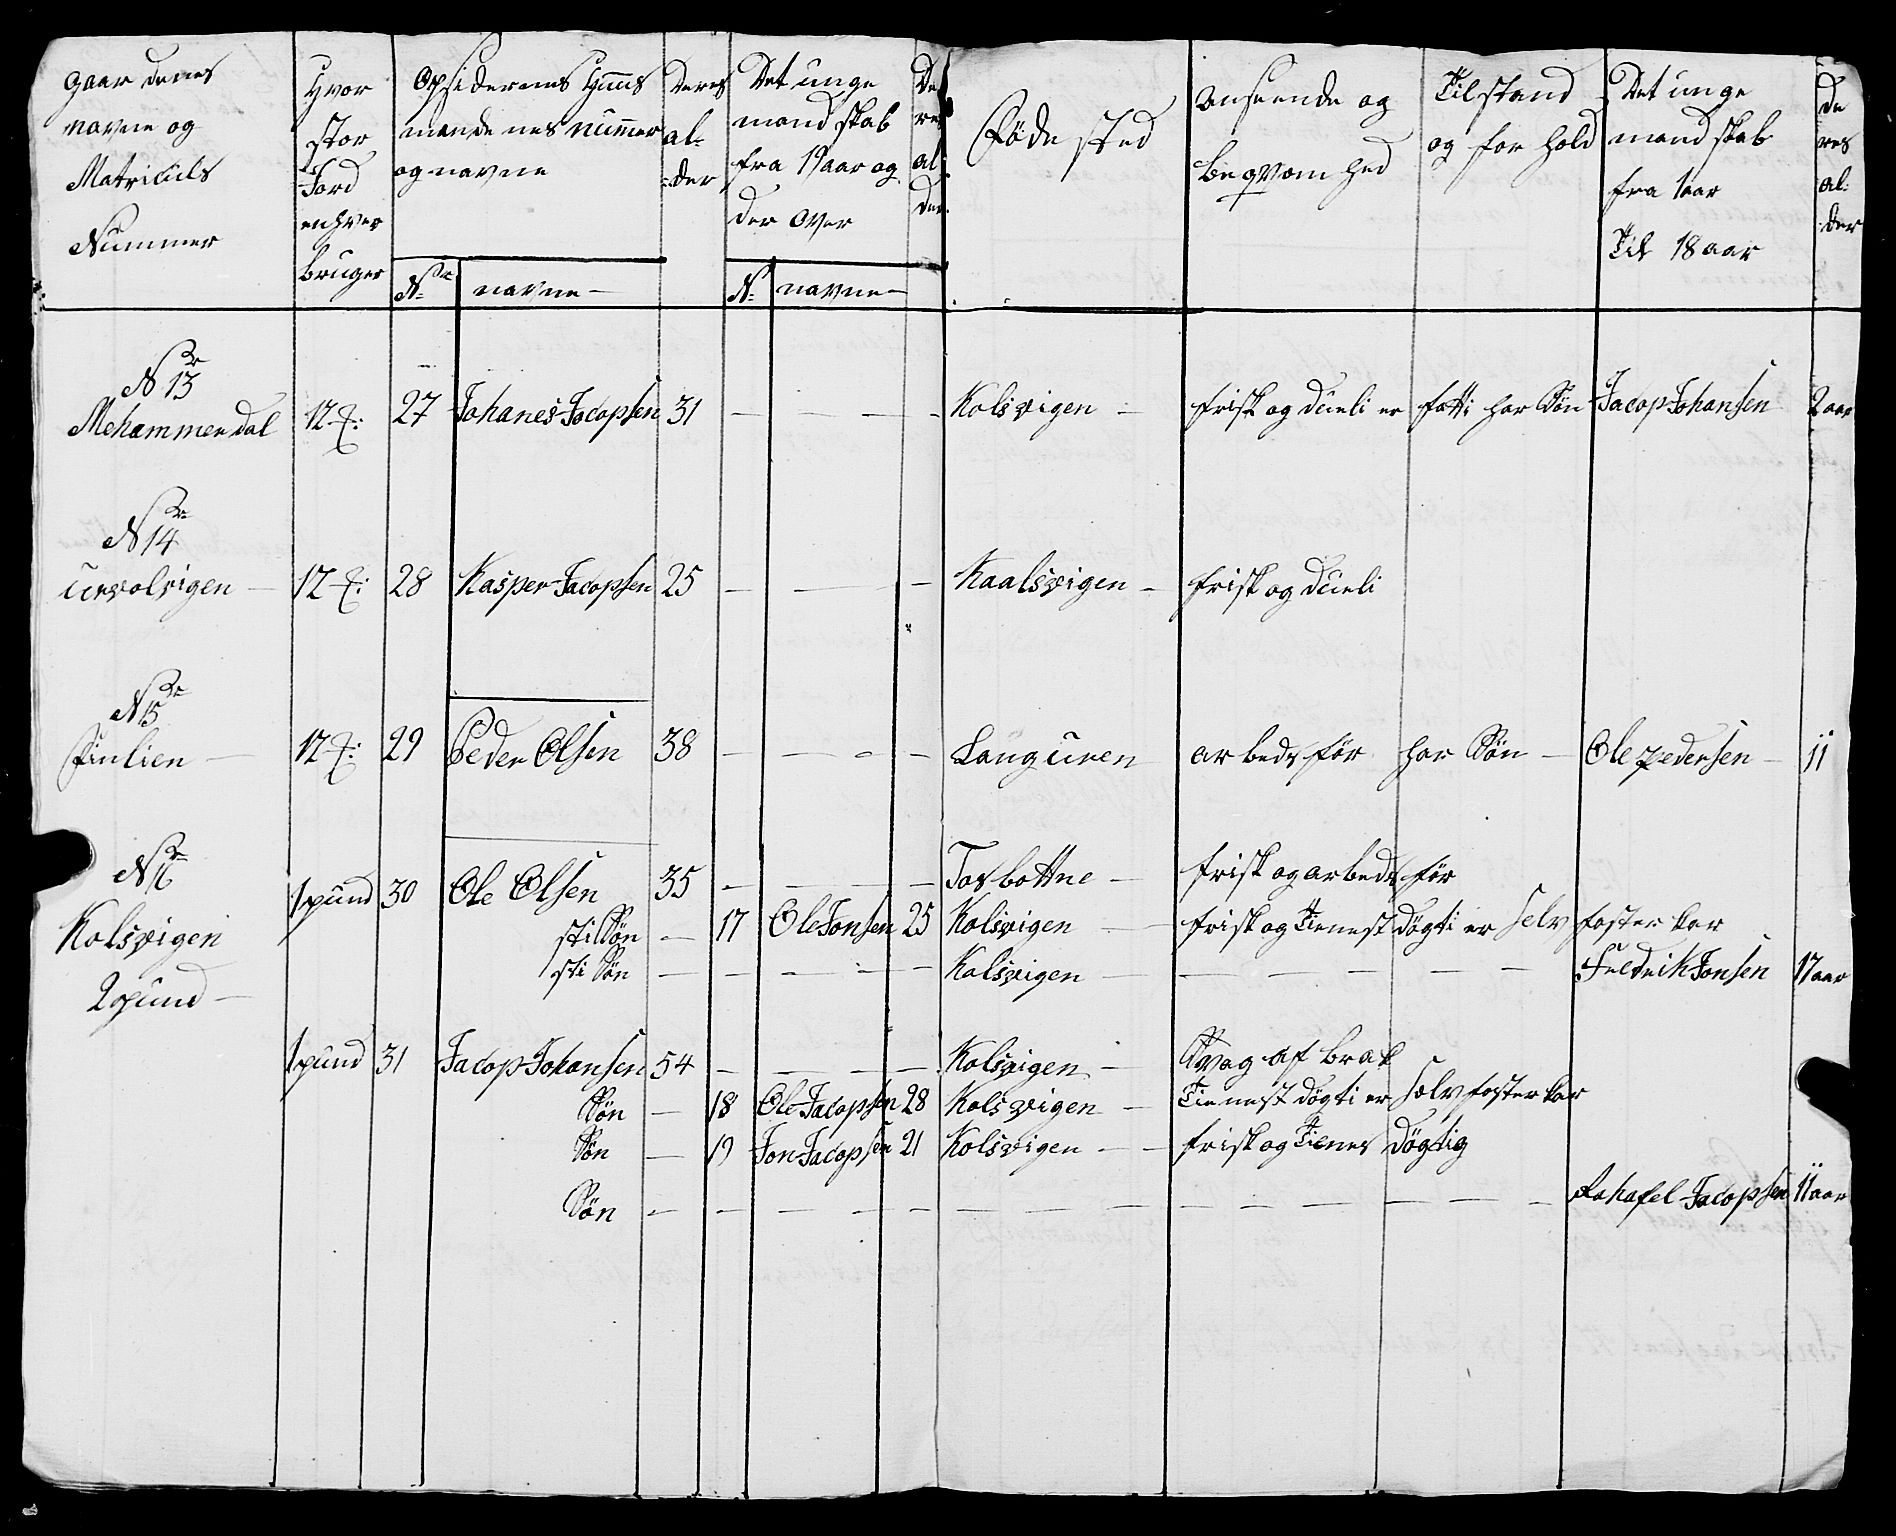 gaardenes
navne og
Matriculs
Nummer
Hvor
stor
Jord
enhver
bruger
Opsidernes Huus
mændenes nummer
og navne
Nr navne
Deres
al-
der
Det unge
mandskab
fra 19 aar og
der over
N: navne
De
res
al:
der
Føde sted
anseende og
beqvemhed
Tilstand
og forhold
Det unge
mandskab
fra 1 aar
Til 18 aar
de
res
al:
der
Nr 13
Mehammendal 12 27 Johanes Jacopsen 31 — — — Kolsvigen — frisk og dueli er fatti har Søn Jacop Johansen 2 aar
Nr 14
Urvolvigen — 12 28 Kasper Jacopsen 25 — — — Kaalsvigen — frisk og dueli
Nr 15
Finlien — 12 29 Peder Olsen 38 — — — — Languren arbedsfør har Søn — Ole pedersen — 11
Nr 16
Kolsvigen
2 pund —
1 pund 30 Ole Olsen 35 — — — — Tosbottne — frisk og arbedsfør
stifSøn — 17 Ole Jonsen 25 Kolsvigen — frisk og Tienest døgti er selv foster kar
stifSøn — — — — — Kolsvigen — — — — — Fredrik Jonsen 17 aar
1 pund 31 Jacop Johansen 54 — — — — Kolsvigen — Svag af brak
Søn — 18 Ole Jacopsen 28 Kolsvigen — Tienest døgti er selv foster kar
Søn — 19 Jon Jacopsen 21 Kolsvigen — — frisk og Tienes døgtig
Søn — — — — — — — — — — — — — — Rahafel Jacopsen 11 aar